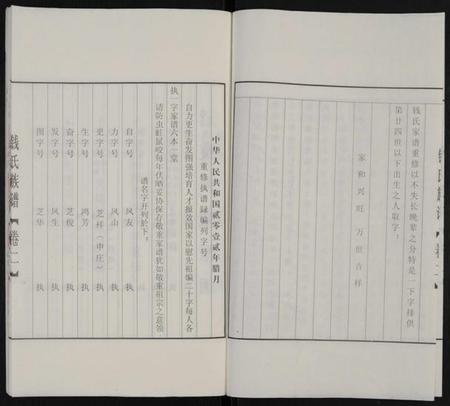 钱氏家谱重修以不失长晚辈之分特是一下字排供
第廿四世以下出生之人取字：
家和兴旺 万世吉祥
中华人民共和国贰零壹贰年腊月
重修执谱録编列字号
自力更生奋发图强培育人才报效国家以慰先祖编二十字每人各
执一字家谱六本一堂
请防虫蛀鼠咬每年伏晒妥协保存敬重家谱犹如敬重祖宗之意领
谱名字开列於下。
自字号 凤友 执
力字号 凤山 执
更字号 芝祥（申庄） 执
生字号 鸿芳 执
奋字号 芝税 执
发字号 凤生 执
图字号 芝华 执
钱氏族谱【卷二】